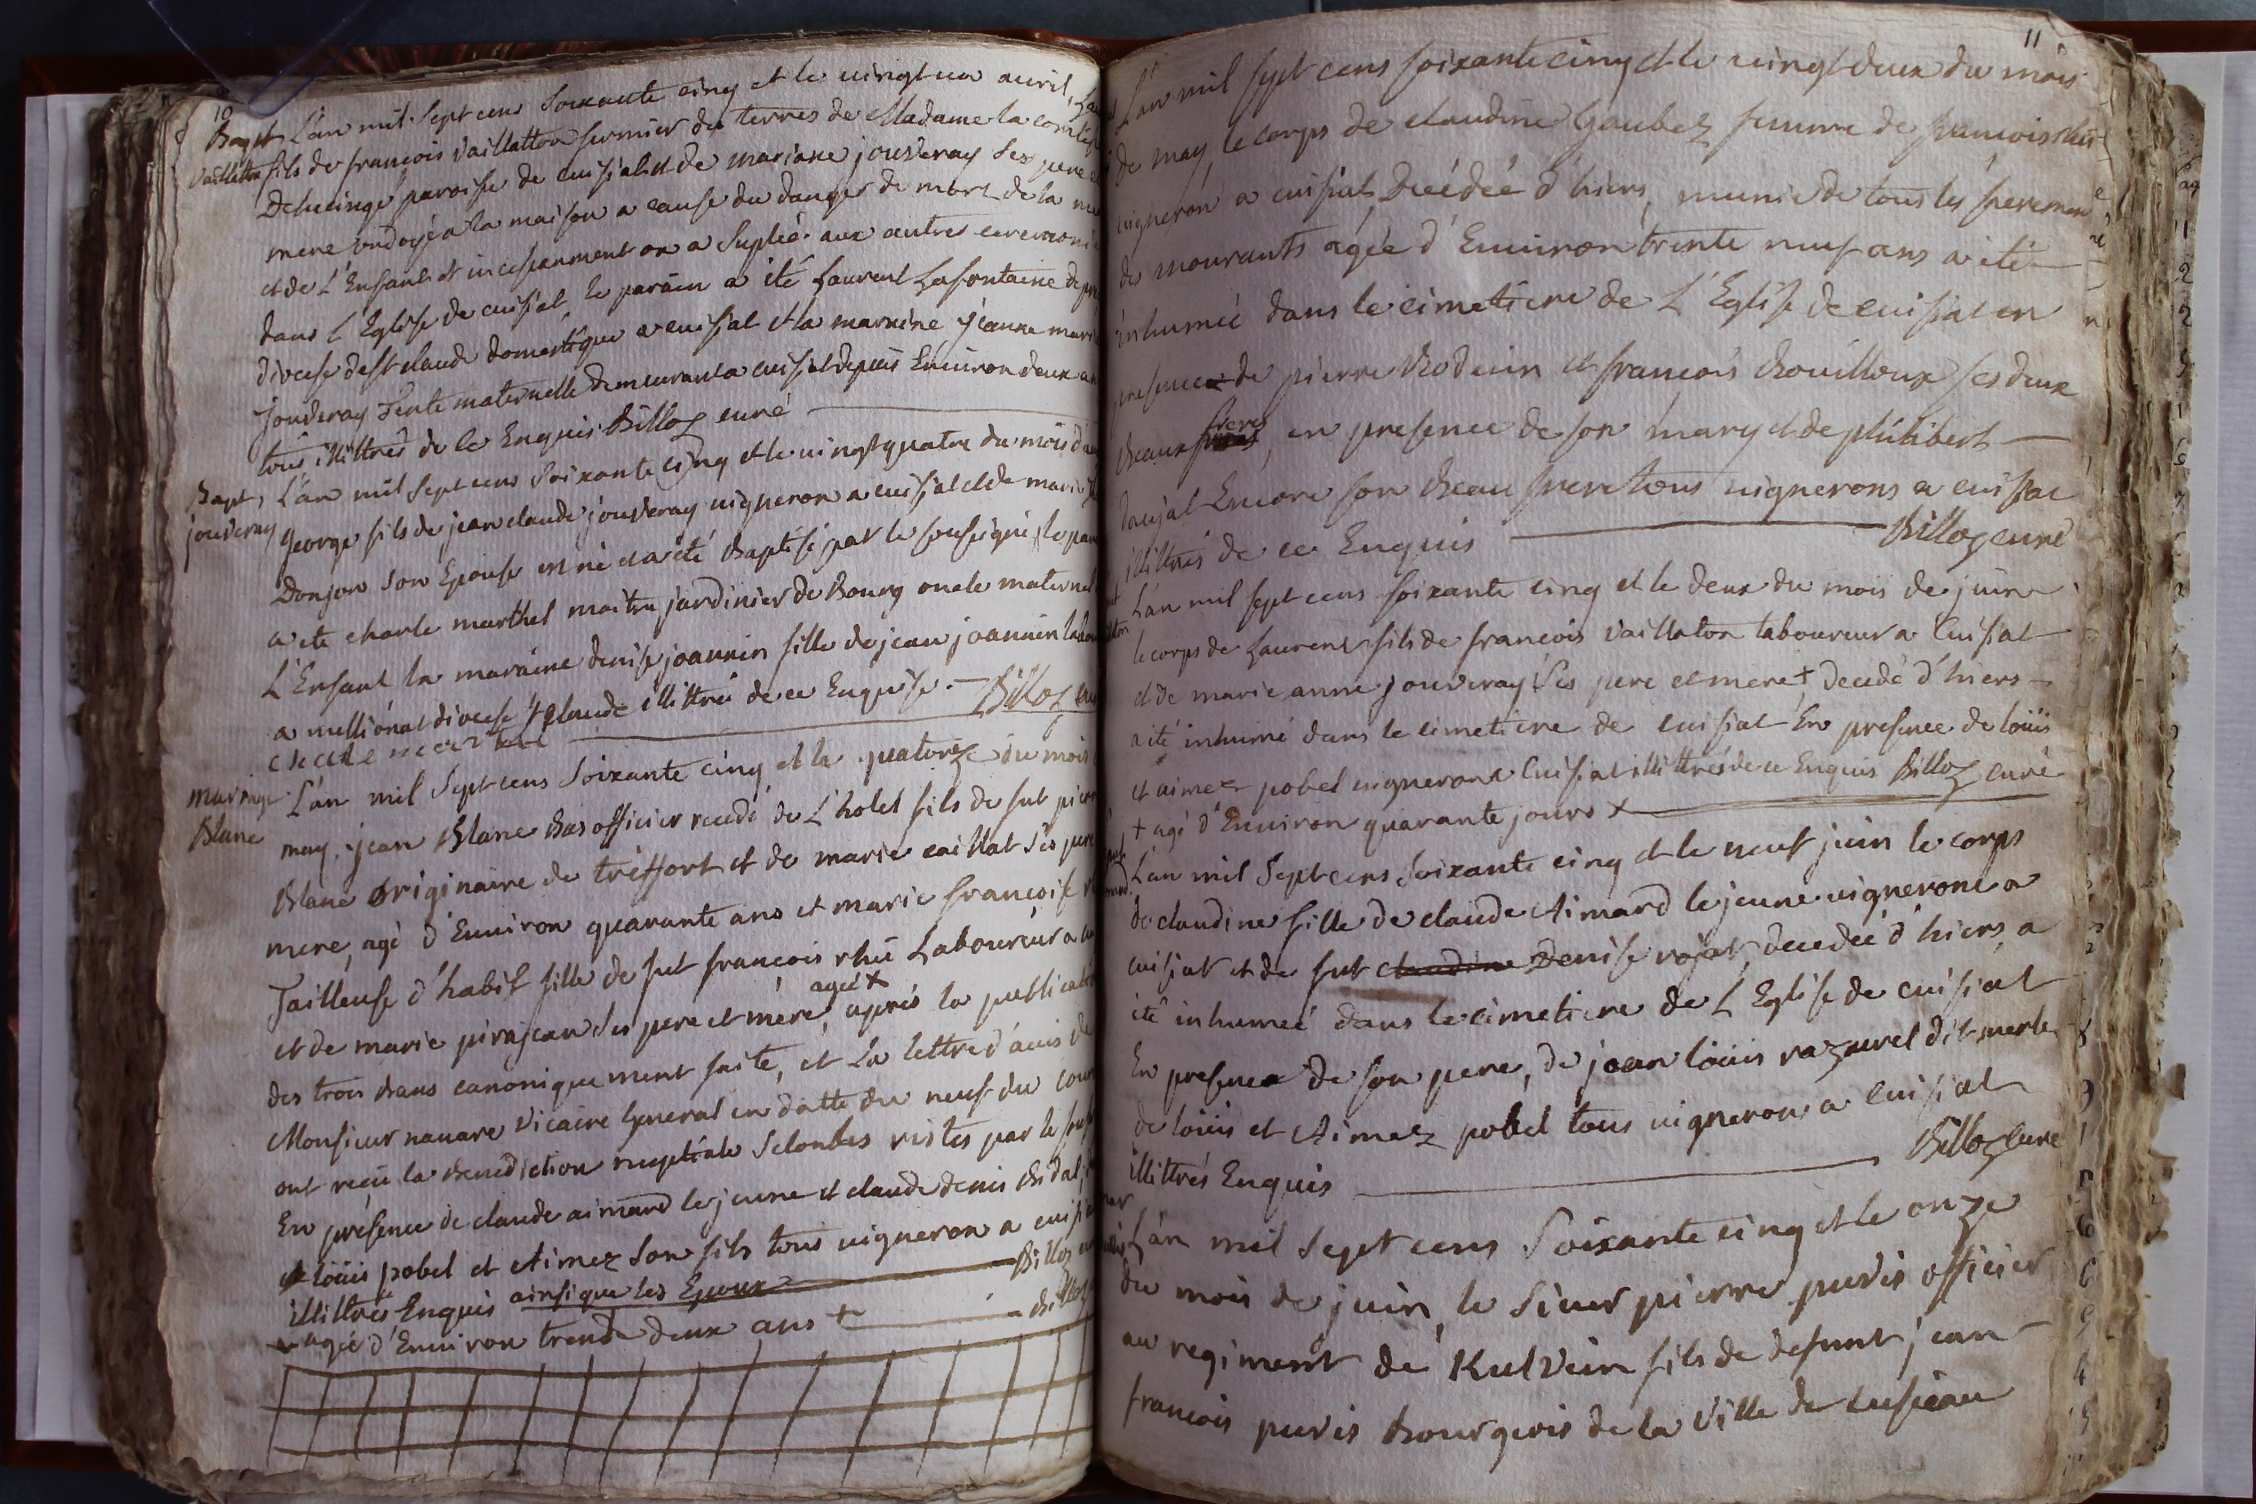 10
Bapt L'an mil sept cens soixante cinq et le vingt un avril,
vaillatton fils de françois vaillatton fermier des terres de Madame la comtesse
paroisse de cuisiat et de mariane jouveray ses pere
mere ondoyé a la maison a cause du danger de mort de la
et de L'Enfant et incessamment on a supleé aux autres ceremonie
dans L'Eglise de cuisiat, le parain a eté Laurent Lafontaine
diocese de st claude domestique a cuisiat et la maraine jeanne mari
jouveray Tente maternelle demeurant a cuisiat depuis Environ deux
tous illittrés de ce Enquis Billoz curé
Bapt, L'an mil sept cens soixante cinq et le vingt quatre du mois
jouveray george fils de jean claude jouveray vigneron a cuisiat et de marie
Donjon son Epouse est né et a été Baptisé par le soussigné, le
a ete charle marthel maitre jardinier de Bourg oncle maternel
L'Enfant la maraine denise joannin fille de jean joannin
a diocese st claude illittrés de ce Enquise. Billoz
mariage L'an mil sept cens soixante cinq et le quatorze du mois
Blanc may, jean Blanc Bas officier de L'hotel fils de fut
Blanc originaire de tréffort et de marie caillat ses pere
mere, agé d'Environ quarante ans et marie françoise
Tailleuse d'habit fille de fut françois rhü Laboureur a
et de marie pirajean ses pere et mere, ageé + aprés la
des trois bans canoniquement faite, et la lettre d'avis
Monsieur navare vicaire General en datte du neuf du
ont reçu la Benediction nuptiale selon les ristes par le
En présence de claude aimard le jeune et claude denis Bidal,
et loüis pobel et Aimez son fils tous vigneron a
illittrés Enquis ainsi que les Epoux Billoz
agée d'Environ trente deux ans + Billoz
11
L'an mil sept cens soixante cinq et le vingt deux du mois
de may, le corps de claudine Gaubez femme de francois
vigneron a cuisiat, Decédée d'hiers, munie de tous les
des mourants agée d'Environ trente neuf ans a été
inhumée dans le cimetiere de L'Eglise de cuisiat en
presence de pierre Bodevin et françois Bouilloux ses deux
Beaux freres, en presence de son mary et de philibert
Encore son Beau frere tous vignerons a cuisiat
illittrés de ce Enquis Billoz curé
L'an mil sept cens soixante cinq et le deux du mois de juin
le corps de Laurent fils de francois vaillaton laboureur a Cuisiat
et de marie anne jouveray ses pere et mere +, decedé d'hiers
a été inhumé dans le cimetiere de cuisiat En presence de loüis
et aimez pobel vigneront Cuisiat illittrés de ce Enquis Billoz curé
+ agé d'Environ quarante jours +
L'an mil sept cens soixante cinq et le neuf juin le corps
de claudine fille de claude Aimard le jeune vigneront a
cuisiat et de fut claudine Denise rojat, decedée d'hiers, a
été inhumeé dans le cimetiere de L'Eglise de cuisiat
En presence de son pere, de jean loüis razurel dit merle
de loüis et Aimez pobel tous vigneron a Cuisiat
illittrés Enquis Billoz Curé
L'an mil sept cens soixante cinq et le onze
du mois de juin, le sieur pierre puvis officier
au regiment de Kulvein fils de defunt jean
francois puvis bourgeois de la ville de cuseau